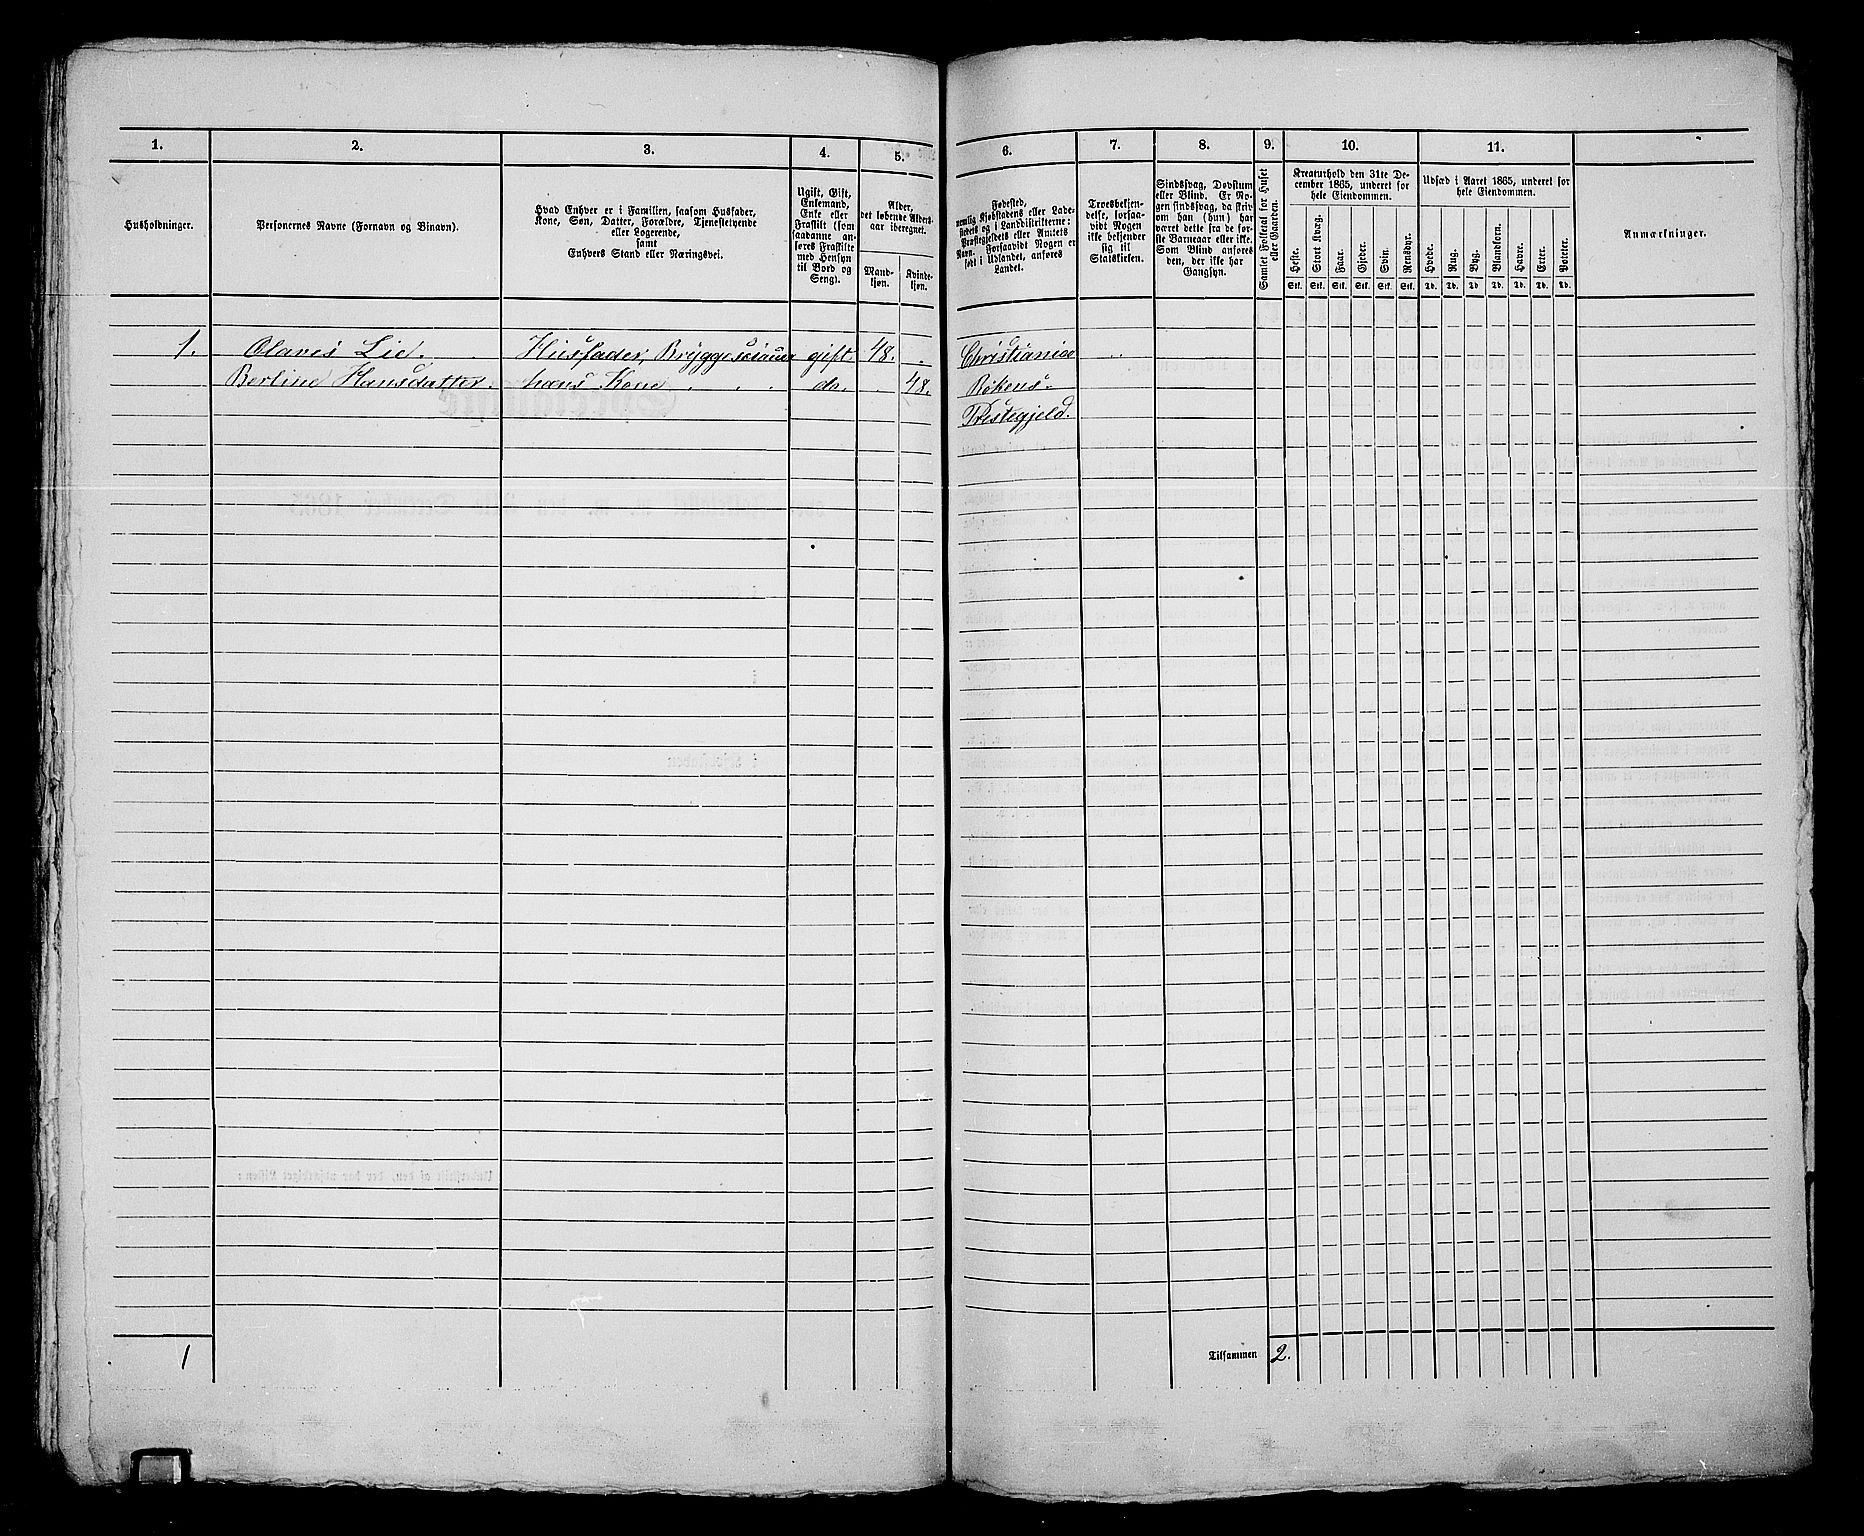 1. 2. 3. 4. 5. 6. 7. 8. 9. 10. 11.
Husholdninger.
Personernes Navne (Fornavn og Binavn).
Hvad Enhver er i Familien, saasom Husfader,
Kone, Søn, Datter, Forældre, Tjenestetyende
eller Logerende,
samt
Enhvers Stand eller Næringsvei.
Ugift, Gift,
Enkemand,
Enke eller
Fraskilt (som
saadanne an-
føres Fraskilte
med Hensyn
til Bord og
Seng).
Alder,
det løbende Alders-
aar iberegnet.
Mand-
kjøn.
Kvinde-
kjøn.
Fødested,
nemlig Kjøbstadens eller Lade-
stedets og i Landdistrikterne:
Præstegjeldets eller Amtets
Navn. Forsaavidt Nogen er
født i Udlandet, anføres
Landet.
Troesbekjen-
delse, forsaa-
vidt Nogen
ikke bekjender
sig til
Statskirken.
Sindssvag, Døvstum
eller Blind. Er No-
gen sindssvag, da skriv
om han (hun) har
været dette fra de før-
ste Barneaar eller ikke.
Som Blind anføres
den, der ikke har
Gangsyn.
Samlet Folketal for Huset
eller Gaarden.
Kreaturhold den 31te De-
cember 1865, underet for
hele Eiendommen.
Heste. Stort Kvæg. Faar. Gjeder. Svin. Rensdyr.
Stk. Stk. Stk. Stk. Stk. Stk.
Udsæd i Aaret 1865, underet for
hele Eiendommen.
Hvede. Rug. Byg. Blandkorn. Havre. Erter. Poteter.
Td. Td. Td. Td. Td. Td. Td.
Anmærkninger.
1. Olaves Lie. Husfader, gift 48. Christiania
Berline Hansdatter. hans Kone do. 48. Røkens
Prestegjeld.
1 Tilsammen 2.